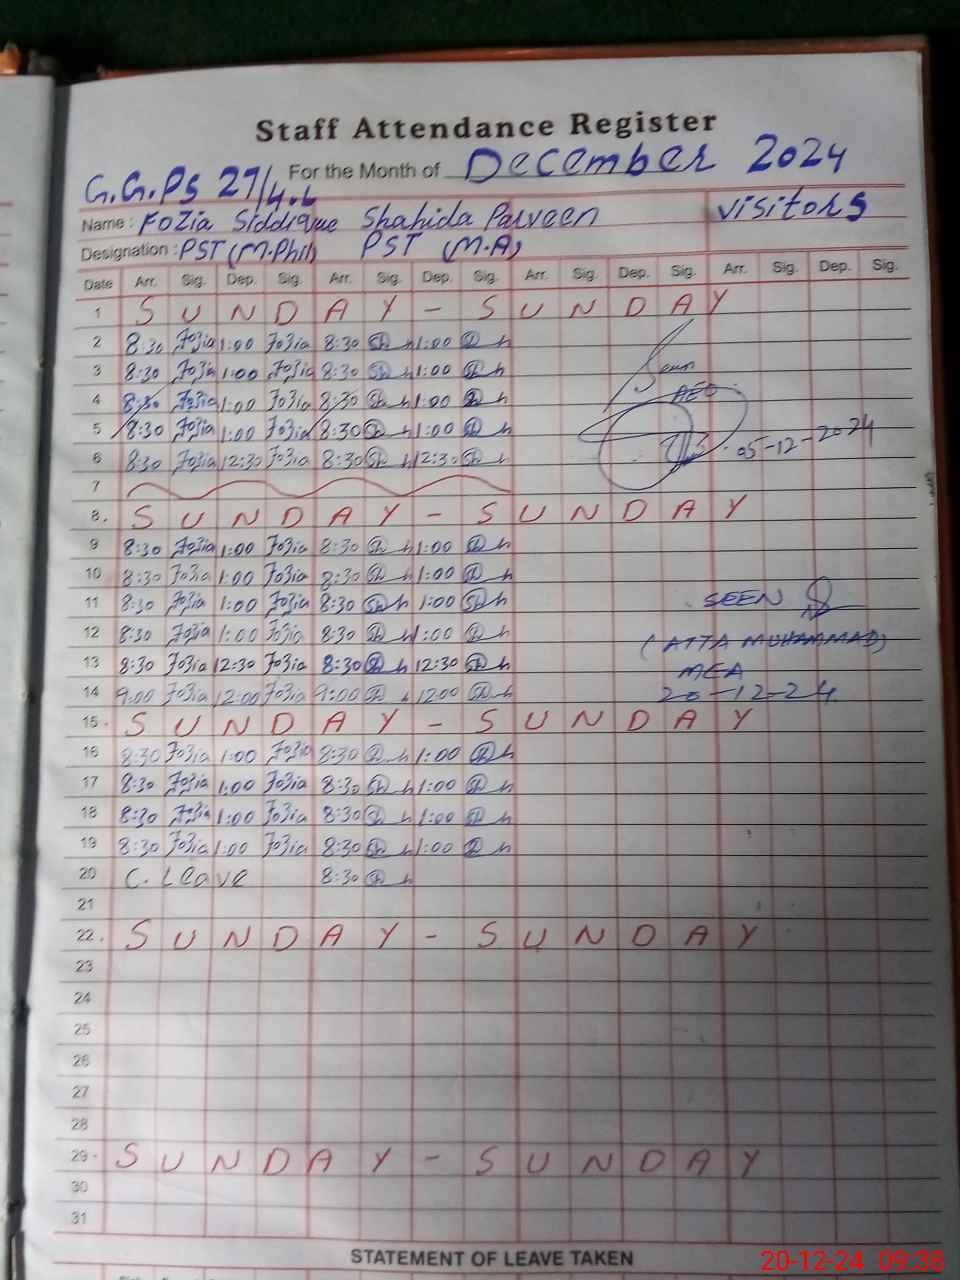 Staff Attendance Register
For the Month of December 2024
G.G.PS 27/4.L
Name: Fozia Siddique Shahida Parveen visitors
Designation: PST (M.Phil) PST (M.A)
Date Arr. Sig. Dep. Sig. Arr. Sig. Dep. Sig. Arr. Sig. Dep. Sig. Arr. Sig. Dep. Sig.
1 SUNDAY - SUNDAY
2 8:30 Fozia 1:00 Fozia 8:30 Sh h 1:00 Sh h
3 8:30 Fozia 1:00 Fozia 8:30 Sh h 1:00 Sh h Seen
4 8:30 Fozia 1:00 Fozia 8:30 Sh h 1:00 Sh h AEO
5 8:30 Fozia 1:00 Fozia 8:30 Sh h 1:00 Sh h 05-12-2024
6 8:30 Fozia 12:30 Fozia 8:30 Sh h 12:30 Sh h
7
8. SUNDAY - SUNDAY
9 8:30 Fozia 1:00 Fozia 8:30 Sh h 1:00 Sh h
10 8:30 Fozia 1:00 Fozia 8:30 Sh h 1:00 Sh h
11 8:30 Fozia 1:00 Fozia 8:30 Sh h 1:00 Sh h SEEN
12 8:30 Fozia 1:00 Fozia 8:30 Sh h 1:00 Sh h (ATTA MUHAMMAD)
13 8:30 Fozia 12:30 Fozia 8:30 Sh h 12:30 Sh h MEA
14 9:00 Fozia 12:00 Fozia 9:00 Sh h 12:00 Sh h 20-12-24
15. SUNDAY - SUNDAY
16 8:30 Fozia 1:00 Fozia 8:30 Sh h 1:00 Sh h
17 8:30 Fozia 1:00 Fozia 8:30 Sh h 1:00 Sh h
18 8:30 Fozia 1:00 Fozia 8:30 Sh h 1:00 Sh h
19 8:30 Fozia 1:00 Fozia 8:30 Sh h 1:00 Sh h
20 C. Leave 8:30 Sh h
21
22. SUNDAY - SUNDAY
23
24
25
26
27
28
29. SUNDAY - SUNDAY
30
31
STATEMENT OF LEAVE TAKEN
20-12-24 09:38